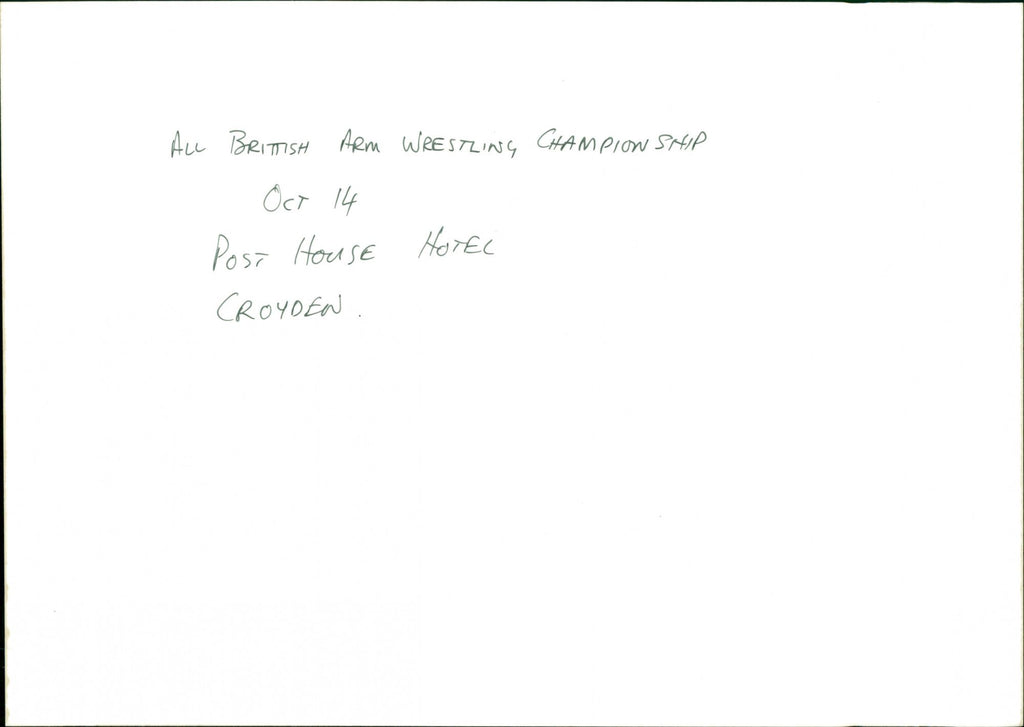 ALL BRITISH ARM WRESTLING CHAMPIONSHIP
OCT 14
POST HOUSE HOTEL
CROYDEN.